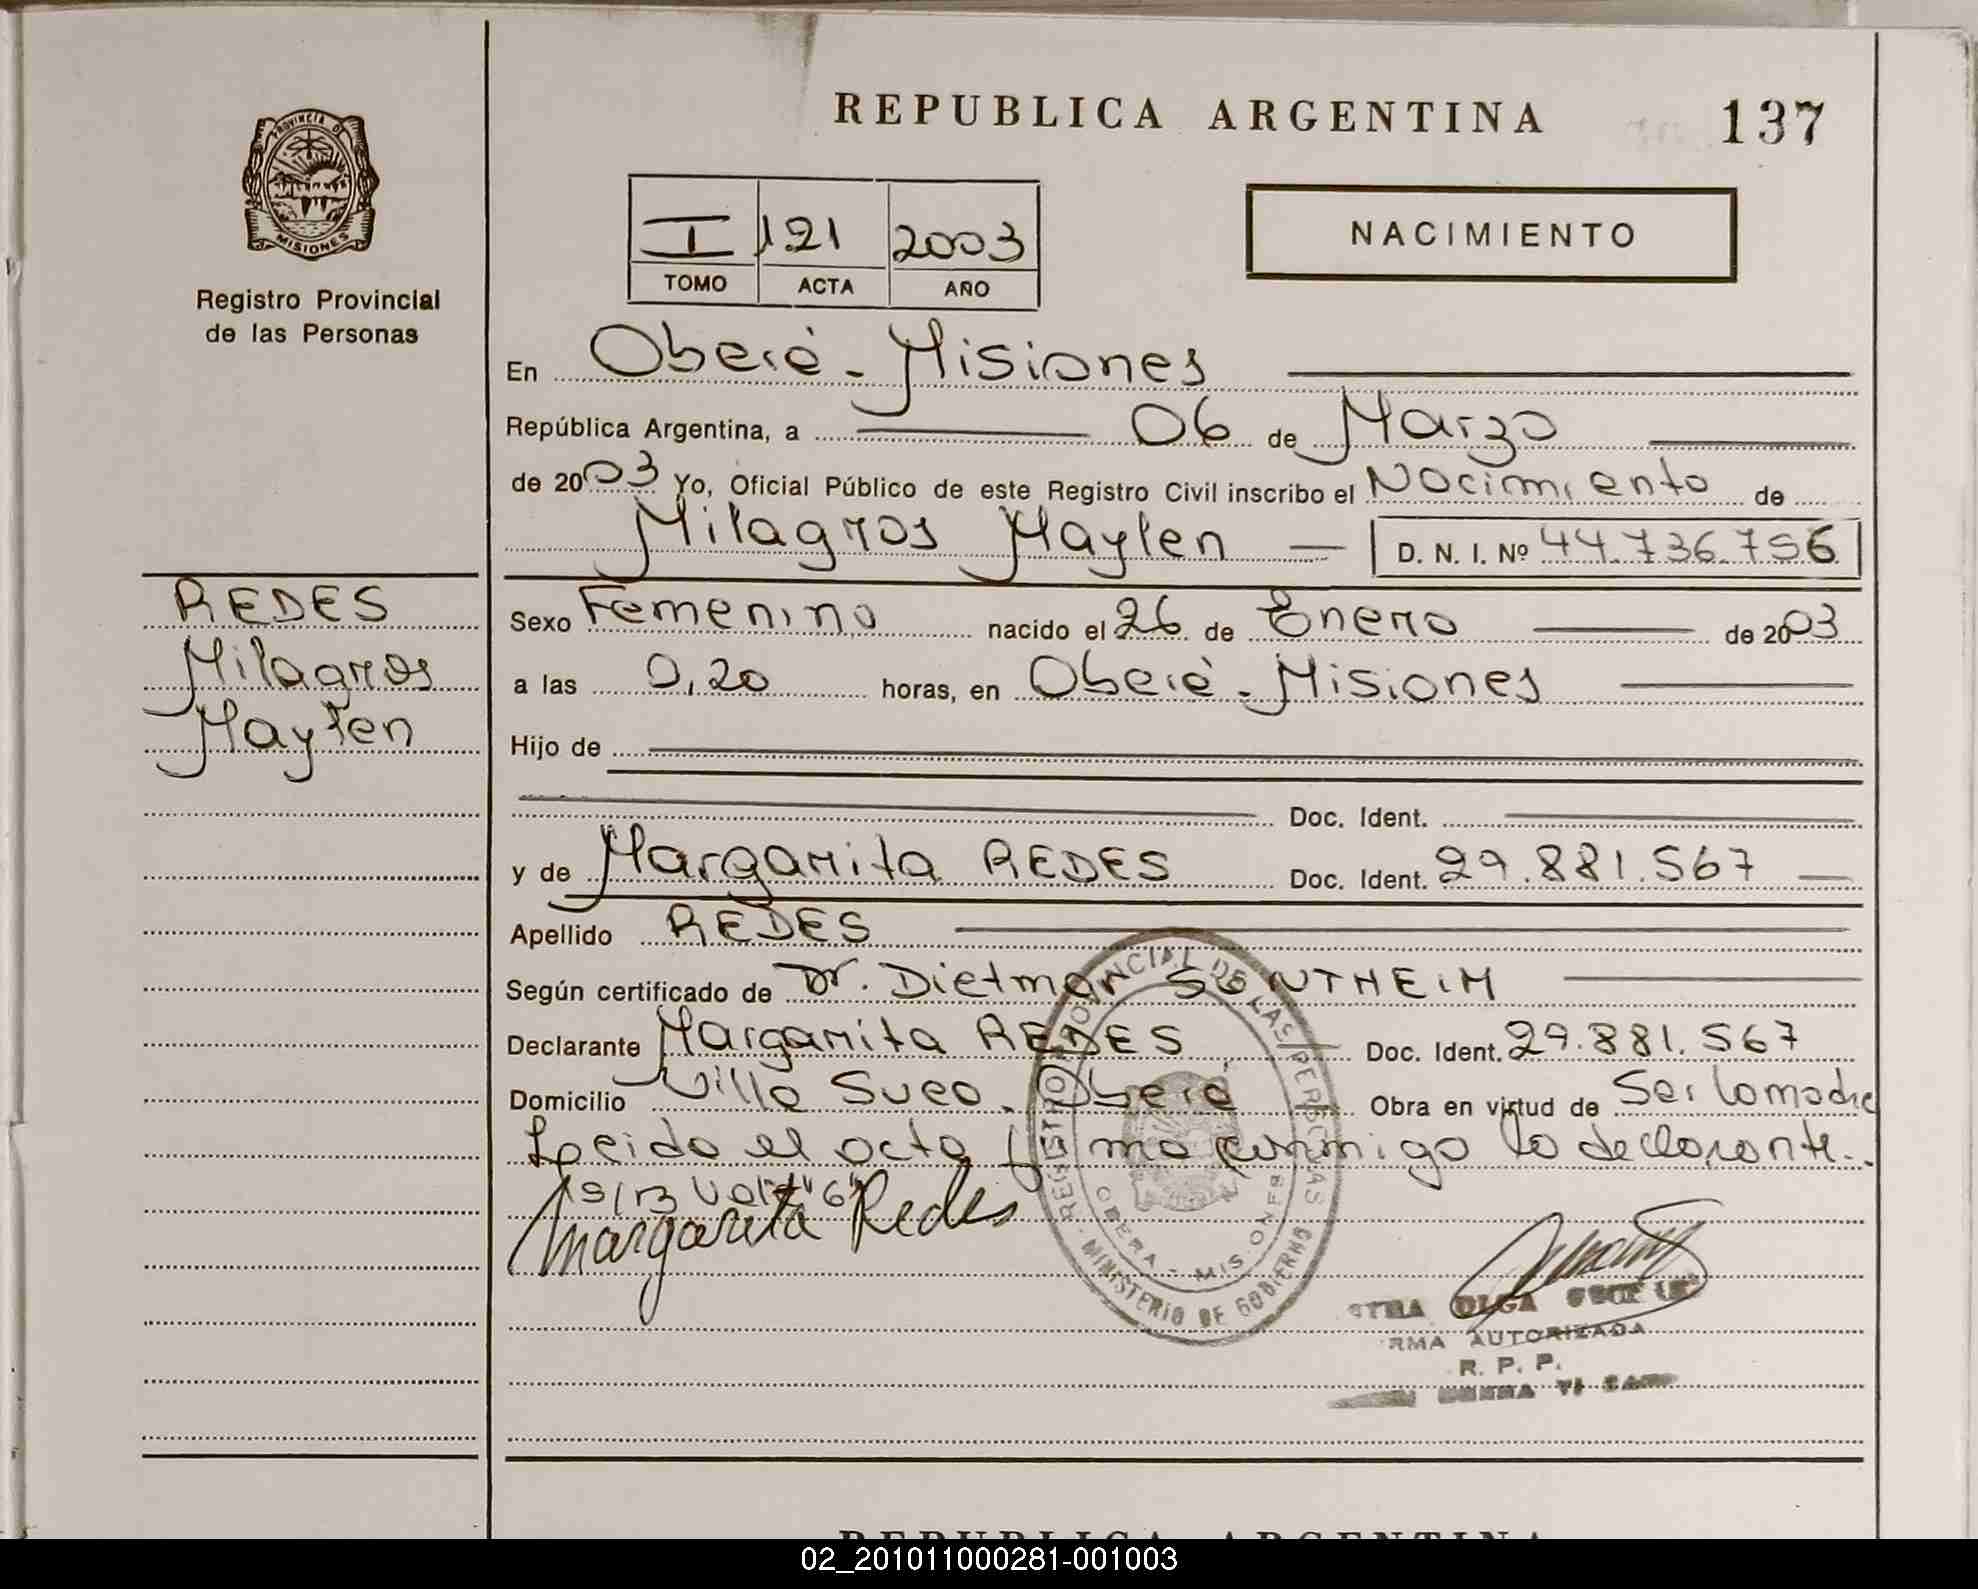 REPUBLICA ARGENTINA 137
PROVINCIA DE
MISIONES
Registro Provincial
de las Personas
NACIMIENTO
I 121 2003
TOMO ACTA AÑO
En Oberá - Misiones
República Argentina, a 06 de Marzo
de 2003 Yo, Oficial Público de este Registro Civil inscribo el Nacimiento de
Milagros Maylen D. N. I. Nº 44.736.756
REDES
Milagros
Maylen
Sexo Femenino nacido el 26 de Enero de 2003
a las 0,20 horas, en Oberá - Misiones
Hijo de
Doc. Ident.
y de Margarita REDES Doc. Ident. 29.881.567
Apellido REDES
Según certificado de Dr. Dietmar SONTHEIM
Declarante Margarita REDES Doc. Ident. 29.881.567
Domicilio Villa Sueo. Oberá Obra en virtud de Ser la madre
Leido el acta firma conmigo la declarante.
S/R Vale "6"
Margarita Redes
REGISTRO PROVINCIAL DE LAS PERSONAS
OBERA - MISIONES
MINISTERIO DE GOBIERNO
OLGA
RMA AUTORIZADA
R. P. P.
REPUBLICA ARGENTINA
02_201011000281-001003